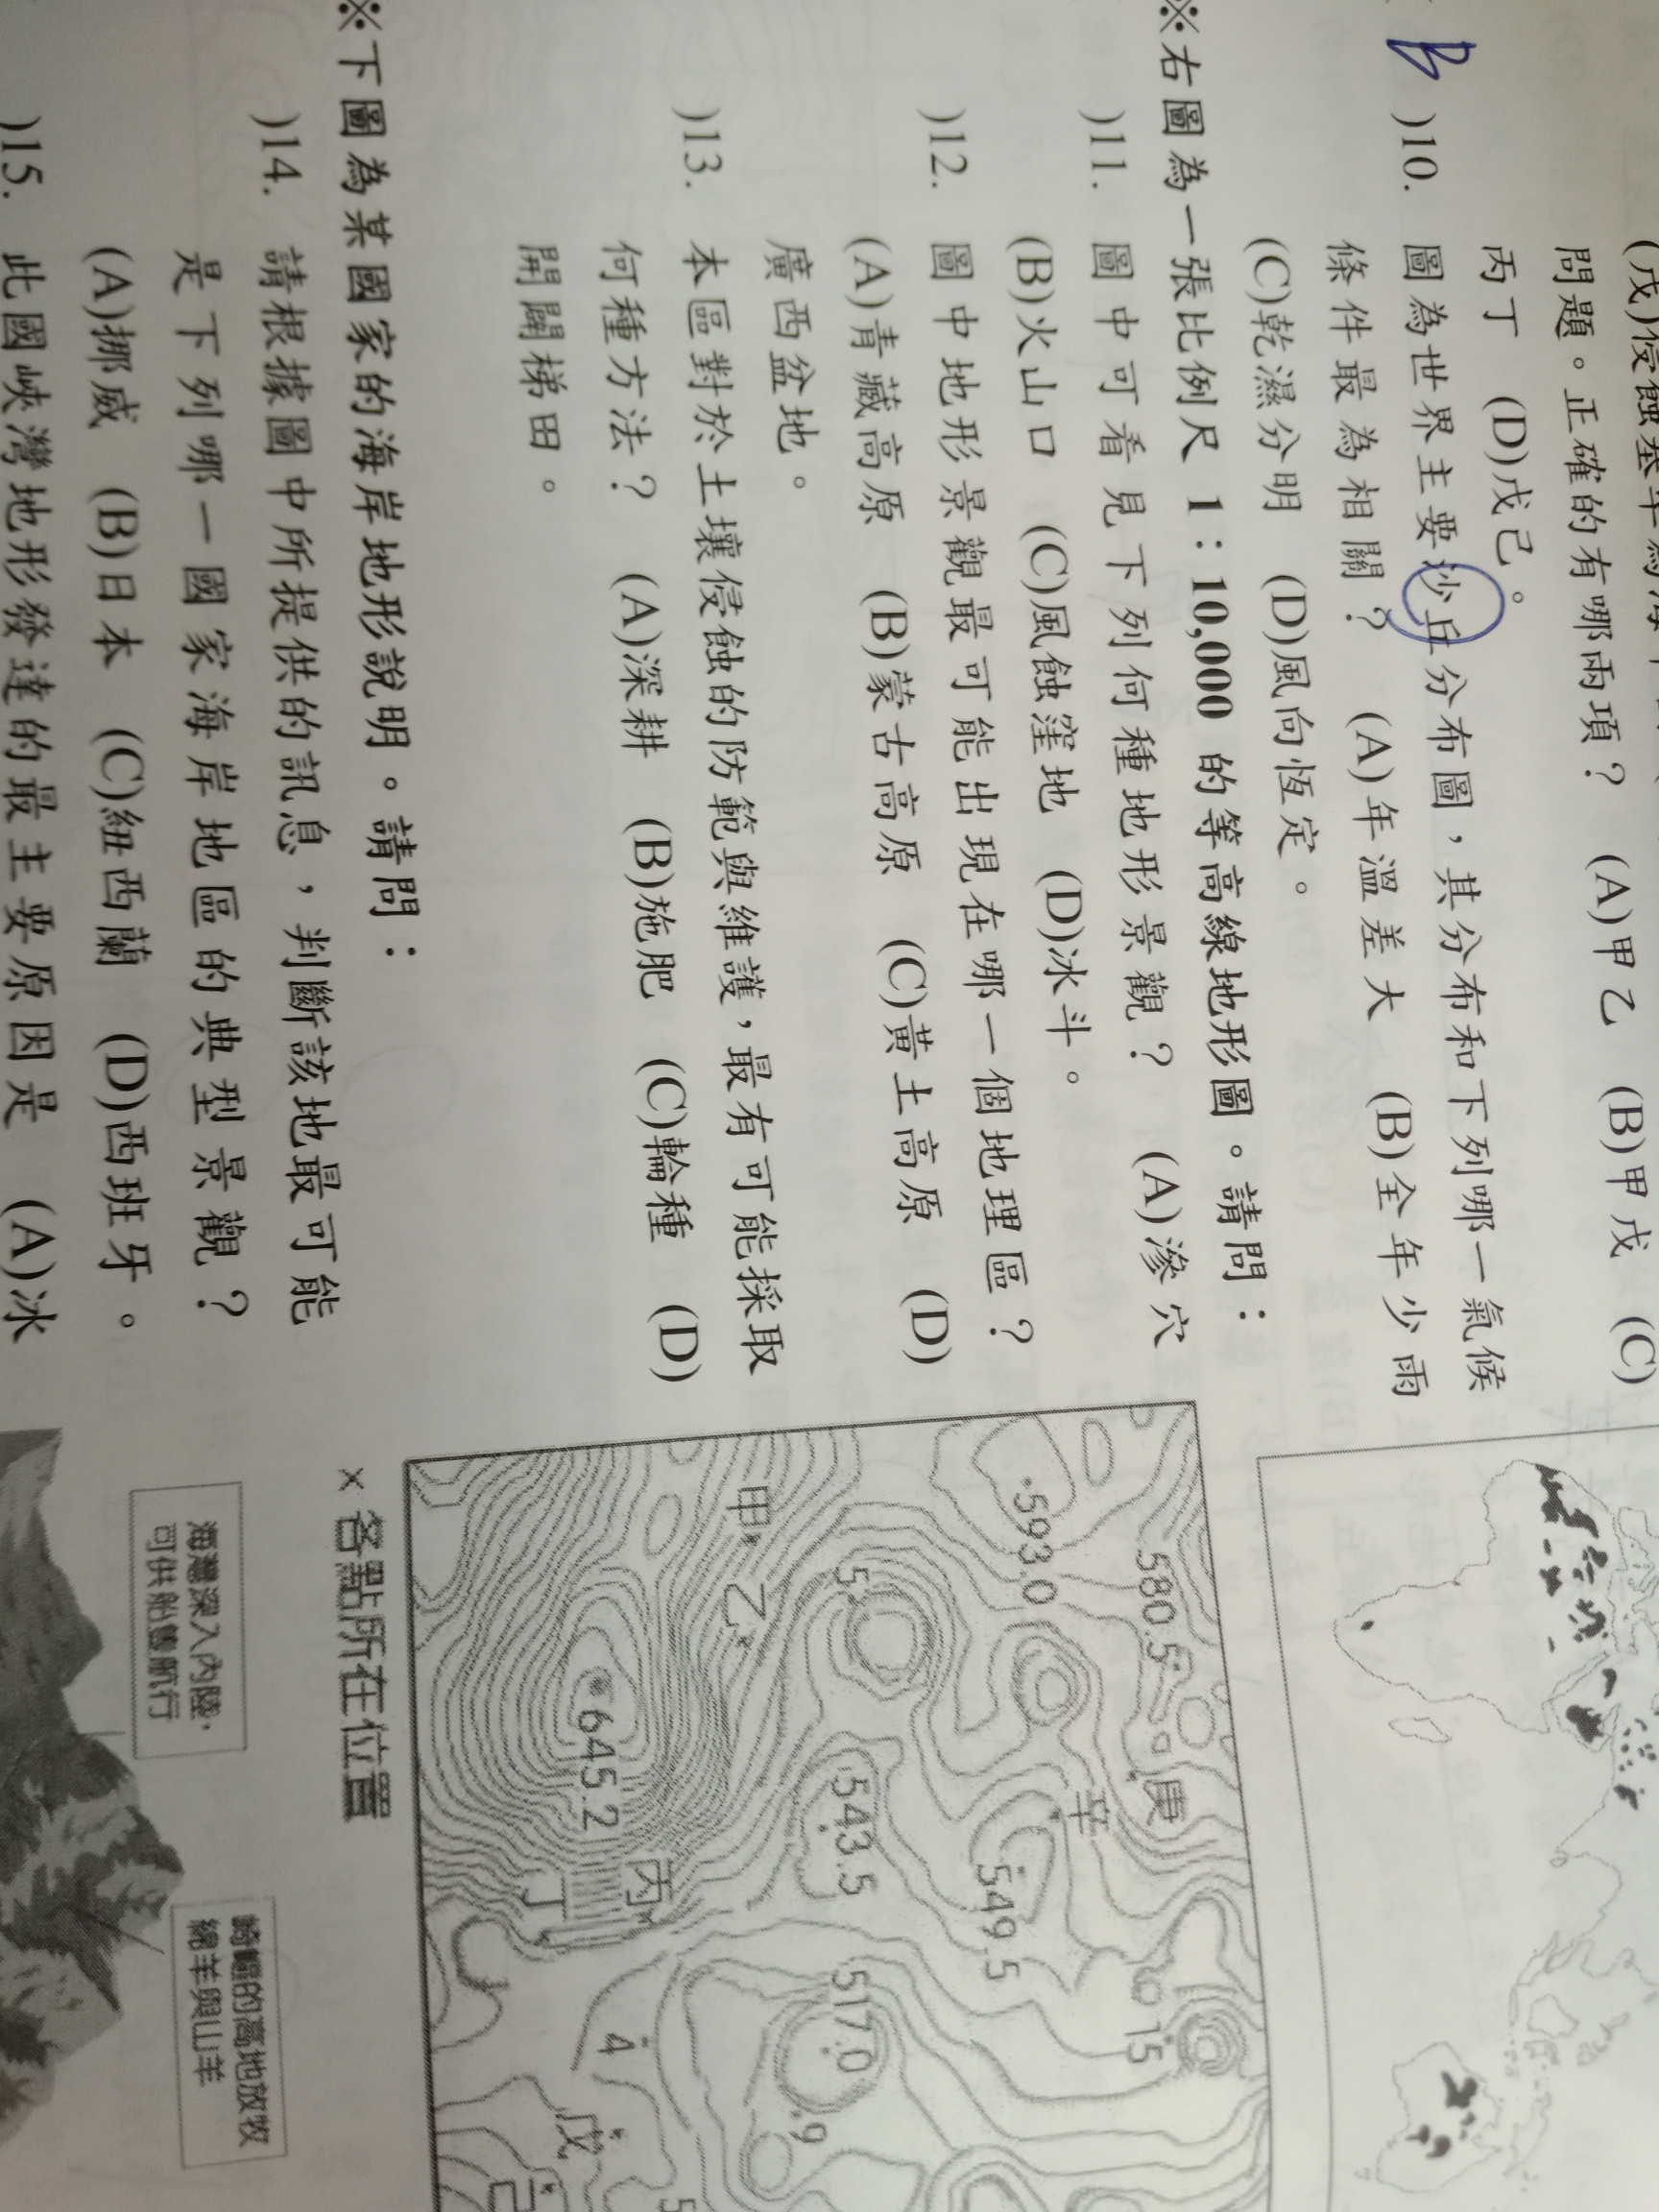 問題。正確的有哪兩項？ (A)甲乙 (B)甲戊 (C)
丙丁 (D)戊己。
)10. 圖為世界主要沙丘分布圖，其分布和下列哪一氣候
條件最為相關？ (A)年溫差大 (B)全年少雨
(C)乾濕分明 (D)風向恆定。
※右圖為一張比例尺 1：10,000 的等高線地形圖。請問：
)11. 圖中可看見下列何種地形景觀？ (A)滲穴
(B)火山口 (C)風蝕窪地 (D)冰斗。
)12. 圖中地形景觀最可能出現在哪一個地理區？
(A)青藏高原 (B)蒙古高原 (C)黃土高原 (D)
廣西盆地。
)13. 本區對於土壤侵蝕的防範與維護，最有可能採取
何種方法？ (A)深耕 (B)施肥 (C)輪種 (D)
開闢梯田。
※下圖為某國家的海岸地形說明。請問：
)14. 請根據圖中所提供的訊息，判斷該地最可能
是下列哪一國家海岸地區的典型景觀？
(A)挪威 (B)日本 (C)紐西蘭 (D)西班牙。
)15. 此國峽灣地形發達的最主要原因是 (A)冰
580.5
庚
593.0
辛
549.5
15
5
543.5
517.0
9
甲
乙
645.2
丙
丁
4
戊
己
5
×各點所在位置
海灣深入內陸，
可供船隻航行
崎嶇的高地放牧
綿羊與山羊